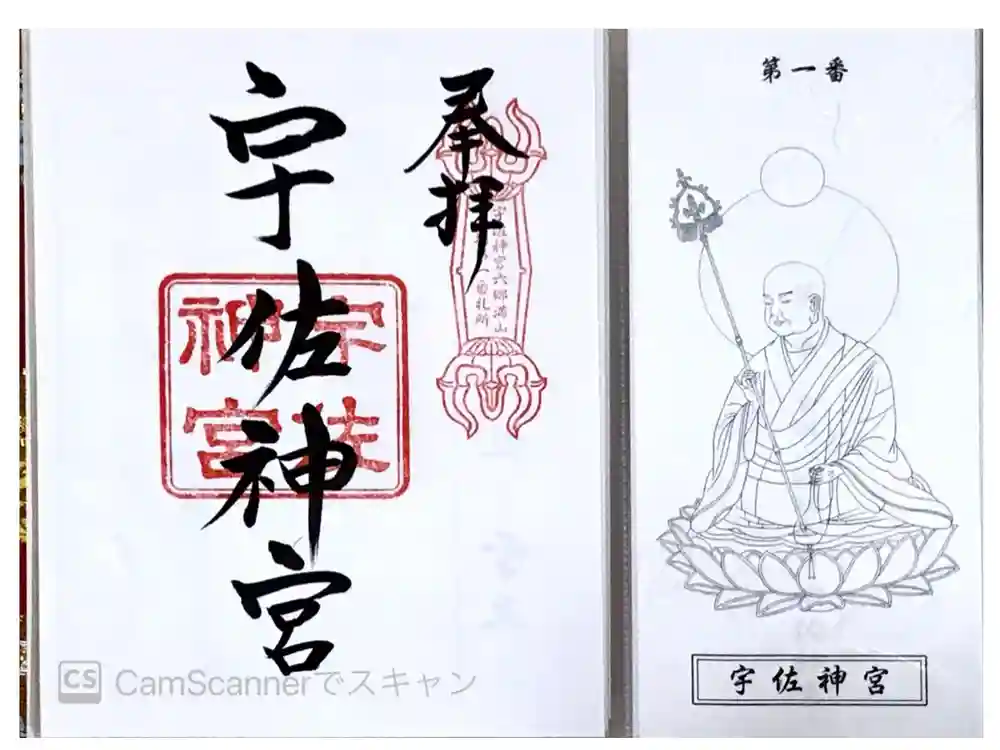 奉拝
宇佐神宮六郷満山
一番札所
宇佐神宮
宇佐
神宮
第一番
宇佐神宮
CS CamScannerでスキャン